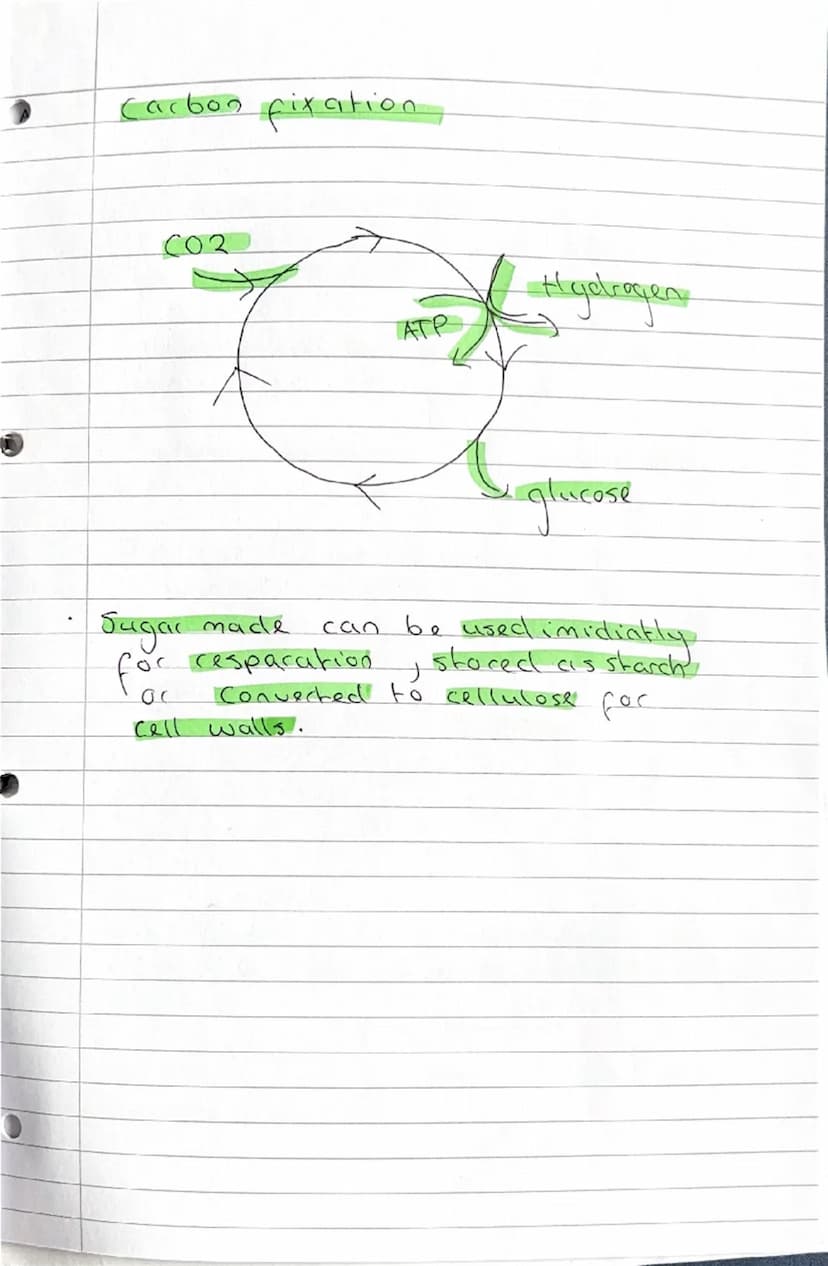 Carbon fixation
CO2
Hydrogen
ATP
glucose
• Sugar made can be used imidiatly
for resparation, stored as starch
or converted to cellulose for
cell walls.